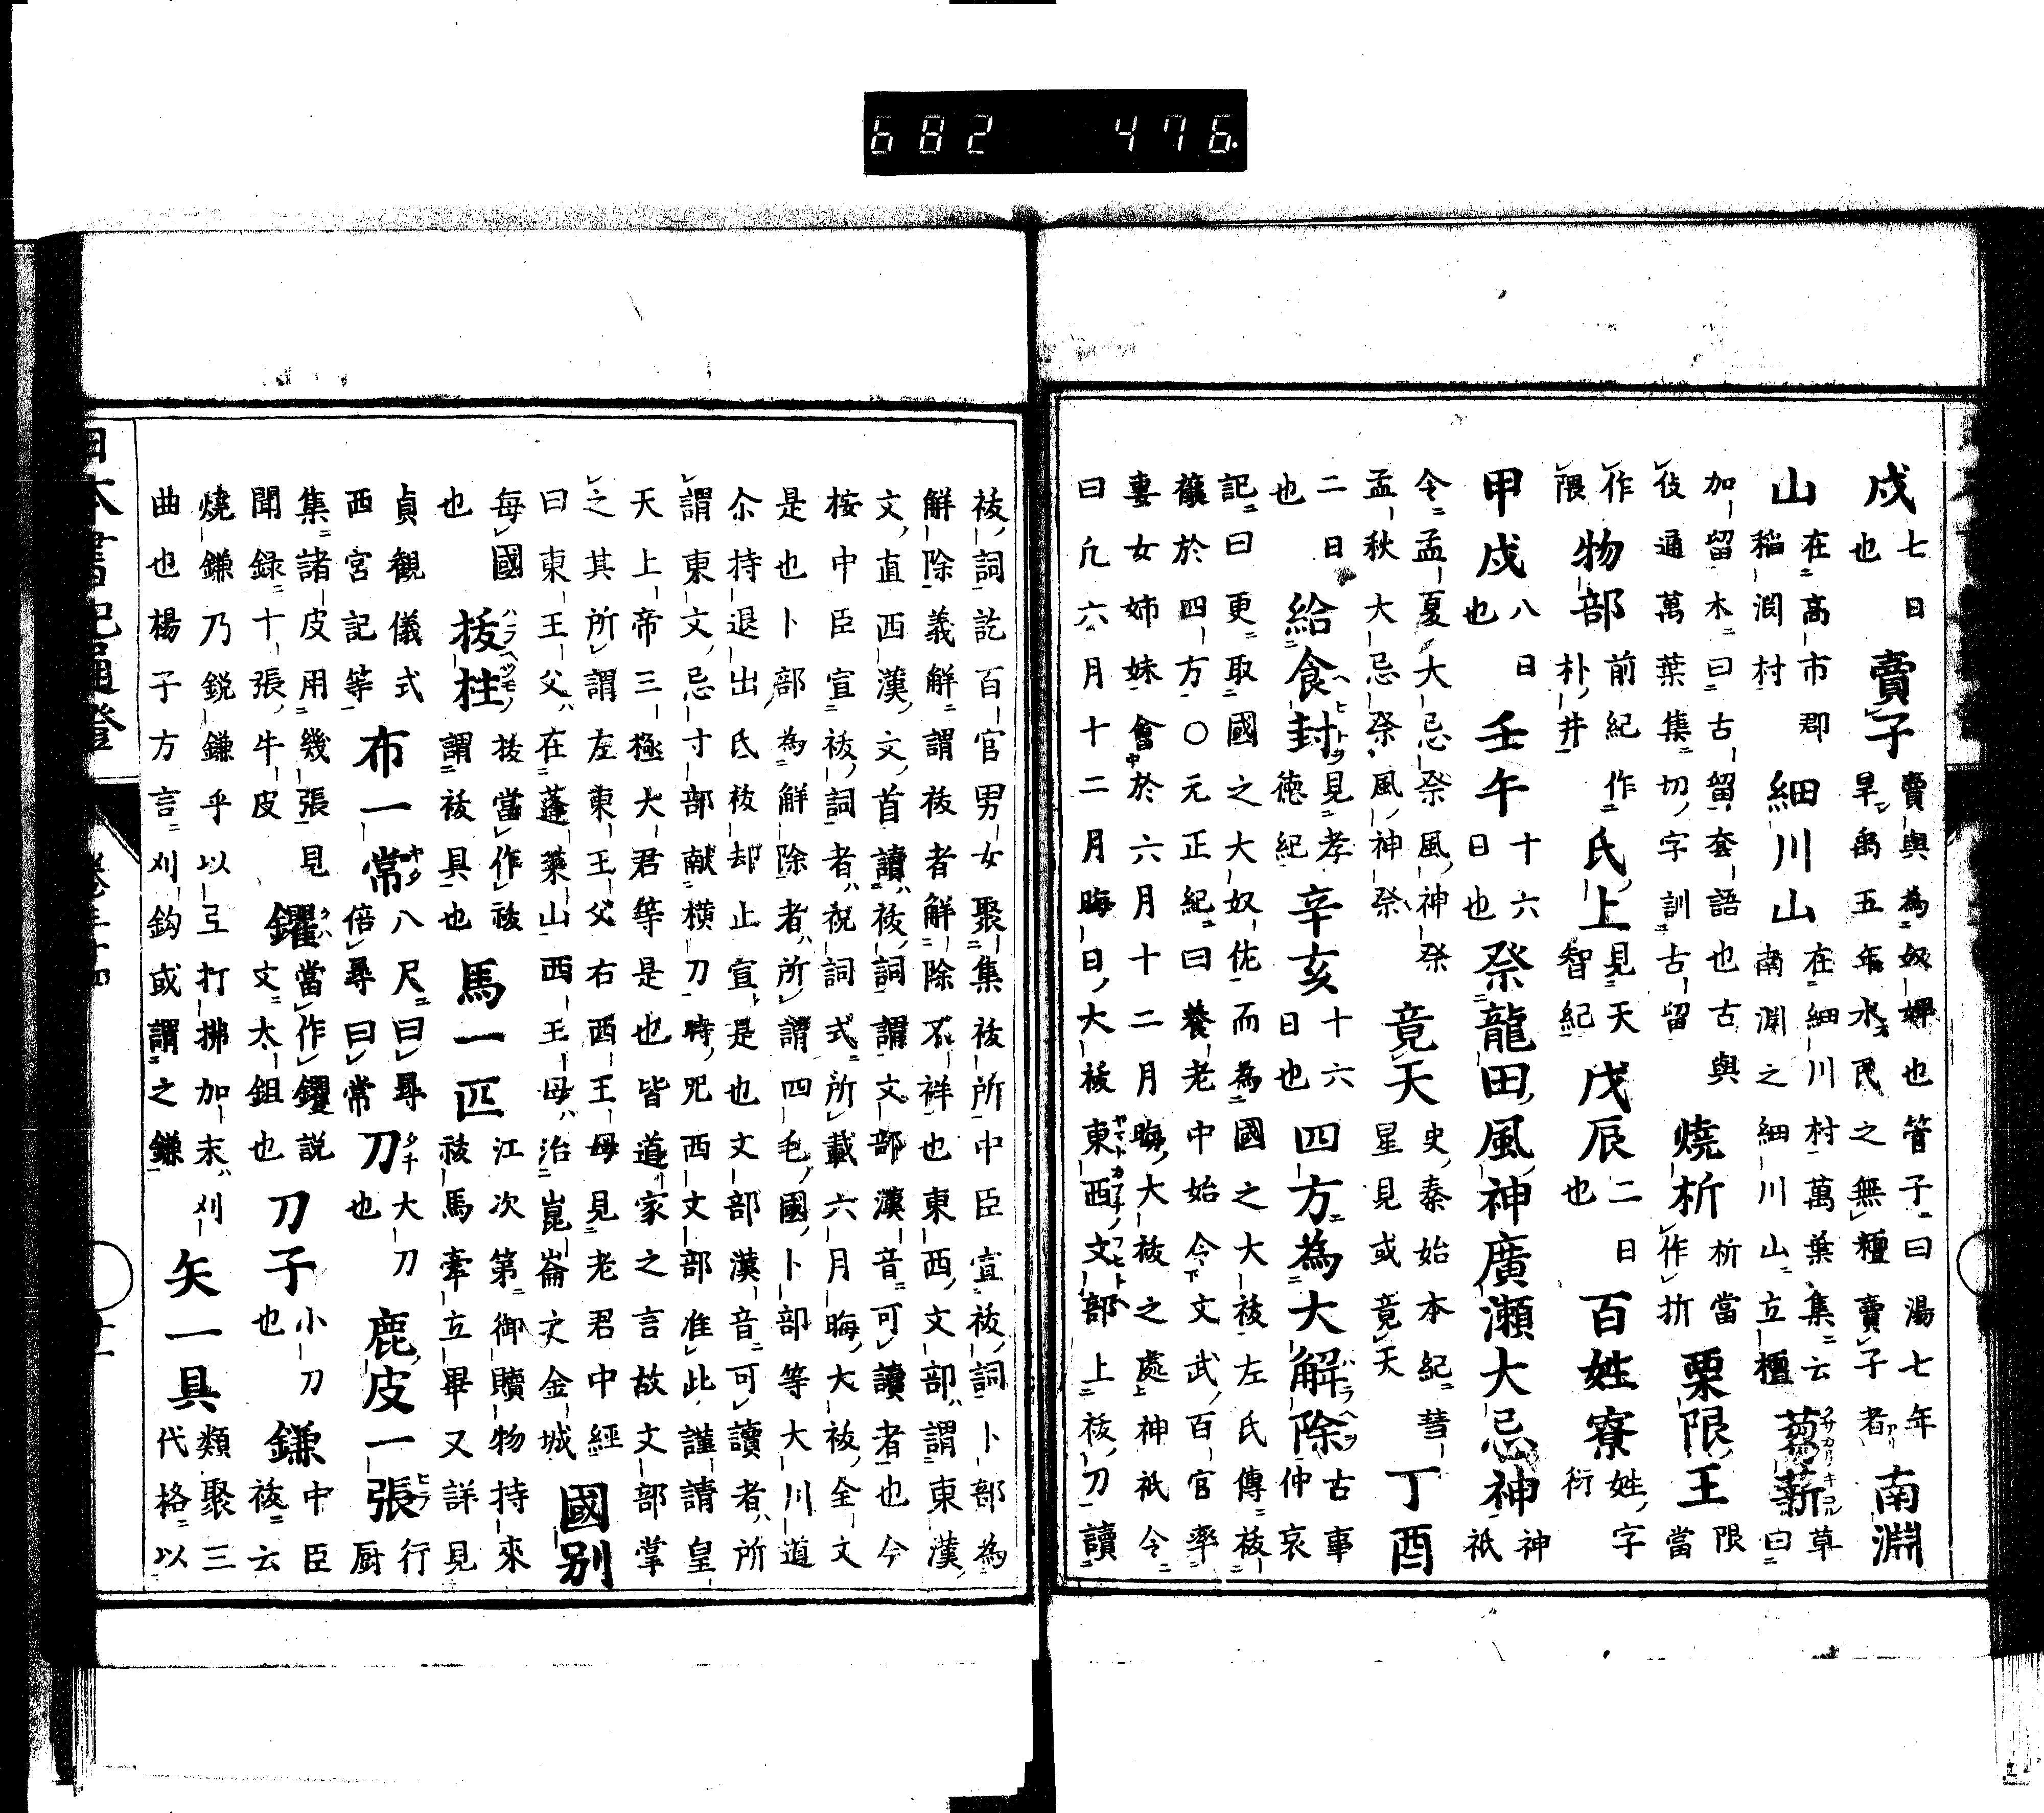 戌 七日也 賣子 賣與為奴婢也管子曰湯七年旱禹五年水民之無糧賣子者 南淵
山 在高市郡稲淵村 細川山 在細川村萬葉集云南淵之細川山立檀 蒭薪 草曰
加留木曰古留套語也古與伎通萬葉集切字訓古留 燒析 析當作折 栗隈王 隈當
作隈 物部 前紀作朴井 氏上 見天智紀 戊辰 二日也 百姓寮 姓字衍
甲戌 八日也 壬午 十六日也 祭龍田風神廣瀬大忌神 神祇
令孟夏大忌祭風神祭孟秋大忌祭風神祭 竟天 史秦始本紀彗星見或竟天 丁酉
二日也 給食封 見孝徳紀 辛亥 十六日也 四方為大解除 古事仲哀
記曰更取國之大奴佐而為國之大祓左氏傳祓
禳於四方○元正紀曰養老中始令文武百官率
妻女姉妹會於六月十二月晦大祓之處神祇令
曰凢六月十二月晦日大祓東西文部上祓刀讀
祓詞訖百官男女聚集祓所中臣宣祓詞卜部為
解除義解謂祓者解除不祥也東西文部謂東漢
文直西漢文首讀祓詞謂文部漢音可讀者也今
桉中臣宣祓詞者祝詞式所載六月晦大祓全文
是也卜部為解除者所謂四毛國卜部等大川道
尒持退出氐祓却止宣是也文部漢音可讀者所
謂東文忌寸部献横刀時咒西文部准此謹請皇
天上帝三極大君等是也皆道家之言故文部掌
之其所謂左東王父右西王母見老君中經
曰東王父在蓬萊山西王母治崑崙之金城 國別
每國也 拔柱 拔當作祓謂祓具也 馬一匹 江次第御贖物持來祓馬牽立畢又詳見
貞観儀式西宮記等 布一常 八尺曰尋倍尋曰常 刀 大刀也 鹿皮一張 行厨
集諸皮用幾張見聞録十張牛皮 钁 當作钁説文大鉏也 刀子 小刀也 鎌 中臣祓云
燒鎌乃鋭鎌乎以弖打拂加末刈曲也楊子方言刈鈎或謂之鎌 矢一具 類聚三代格以
日本書紀通證 卷三十四
682 476